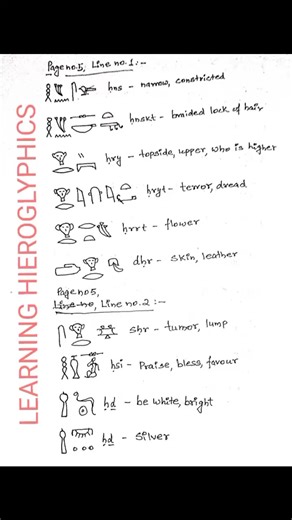 LEARNING HIEROGLYPHICS
Page no.5, Line no.1:-
ḥns - narrow, constricted
ḥnskt - braided lock of hair
ḥry - topside, upper, who is higher
ḥryt - terror, dread
ḥrrt - flower
dḥr - skin, leather
Page no 5,
Line no, Line no.2 :-
sḥr - tumor, lump
ḥsi - Praise, bless, favour
ḥḏ - be white, bright
ḥḏ - silver